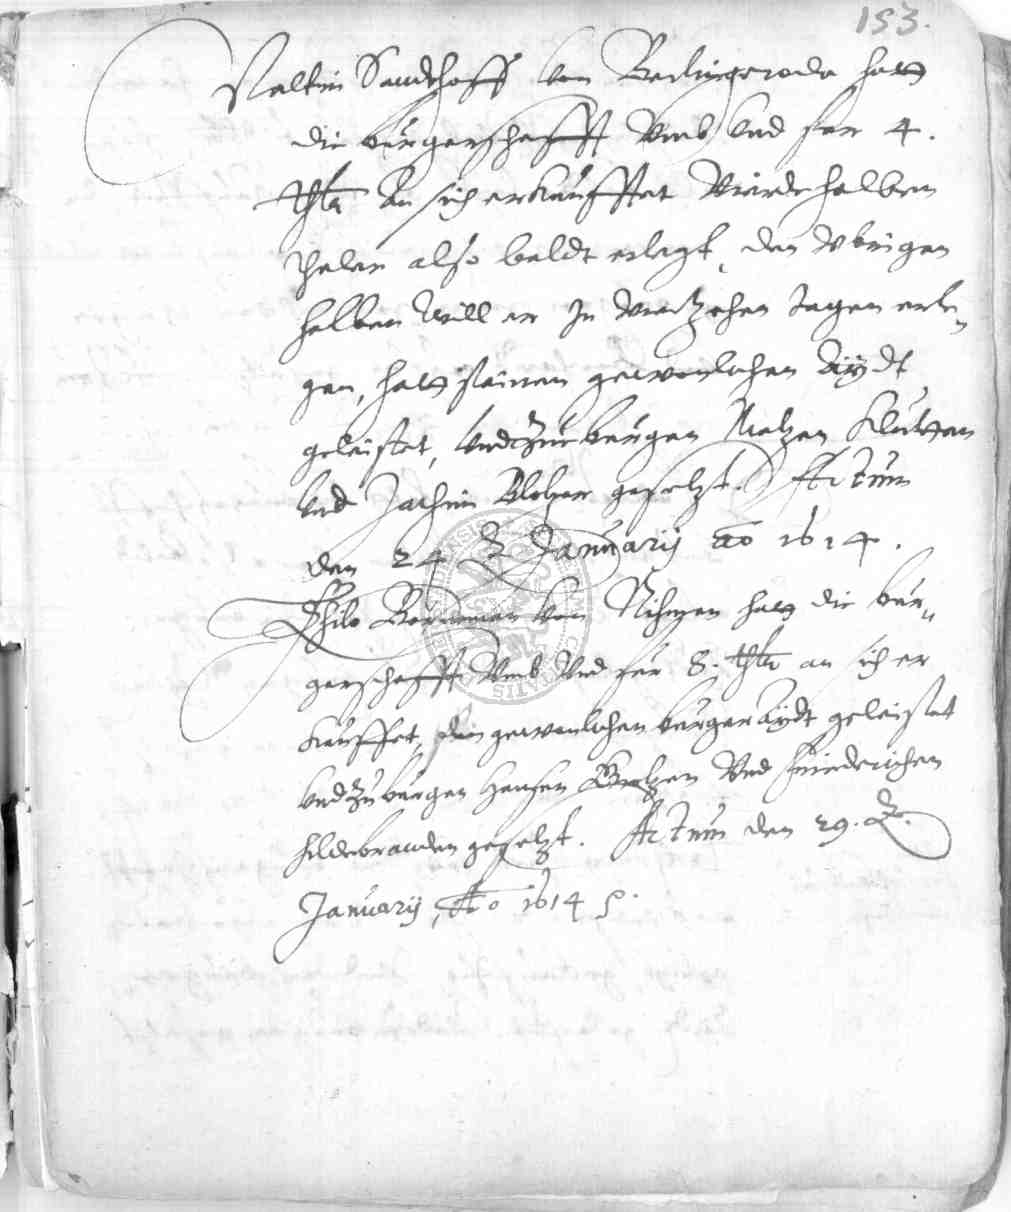 153.
Valtin Sandthoff von Berlingeroda hatt
die burgerschafft vmb vnd fur 4.
thlr an sich erkaufftet Vierdehalben
thaler also baldt erlegt, den vbrigen
halben will er In viertzehen tagen erle„
gen, hatt seinen gewonlichen Aÿdt
geleistet, vnd zue burgen Matzen
vnd Jochim gesetzt. Actum
den 24 Januarij ao 1614.
Thilo Borneman von hatt die bur„
gerschafft vmb vnd fur 8. thlr an sich er
kauffet, den gewonlichen burger aÿdt geleistet
vnd zu burgen Hansen vnd Friederichen
Hildebranden gesetzt. Actum den 29.
Januarij, Ao 1614